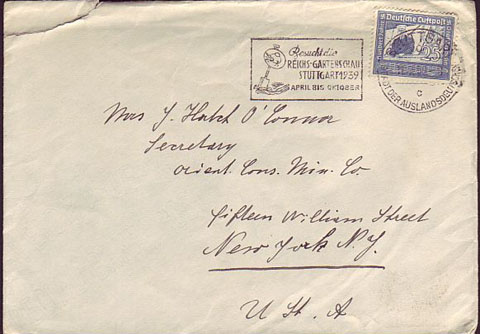 Besucht die
REICHS-GARTENSCHAU
STUTTGART 1939
APRIL BIS OKTOBER
Deutsche Luftpost
C
DER AUSLANDSDEUTSCHEN
Mrs J. Hatch O'Connor
Secretary
Orient. Cons. Min. Co.
Fifteen William Street
New York N.Y.
U St. A